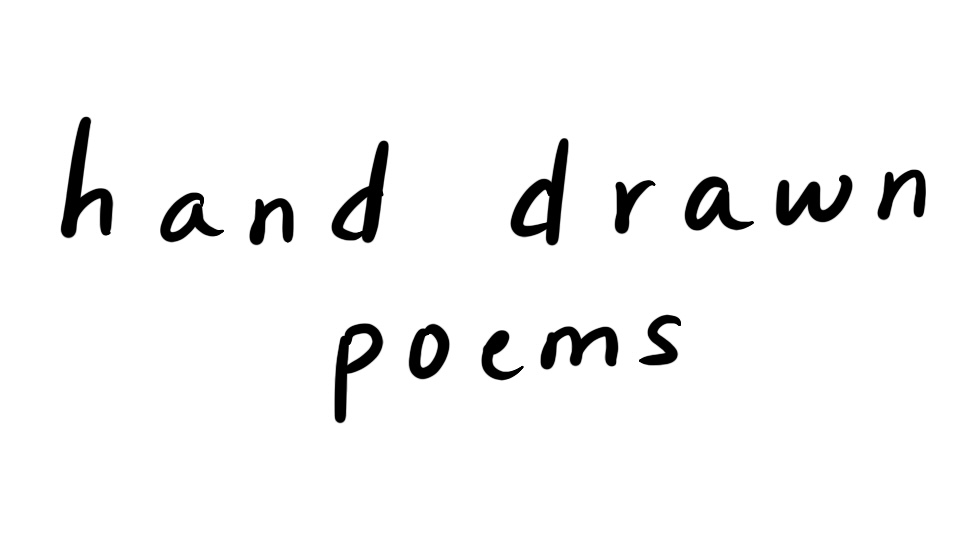 hand drawn
poems